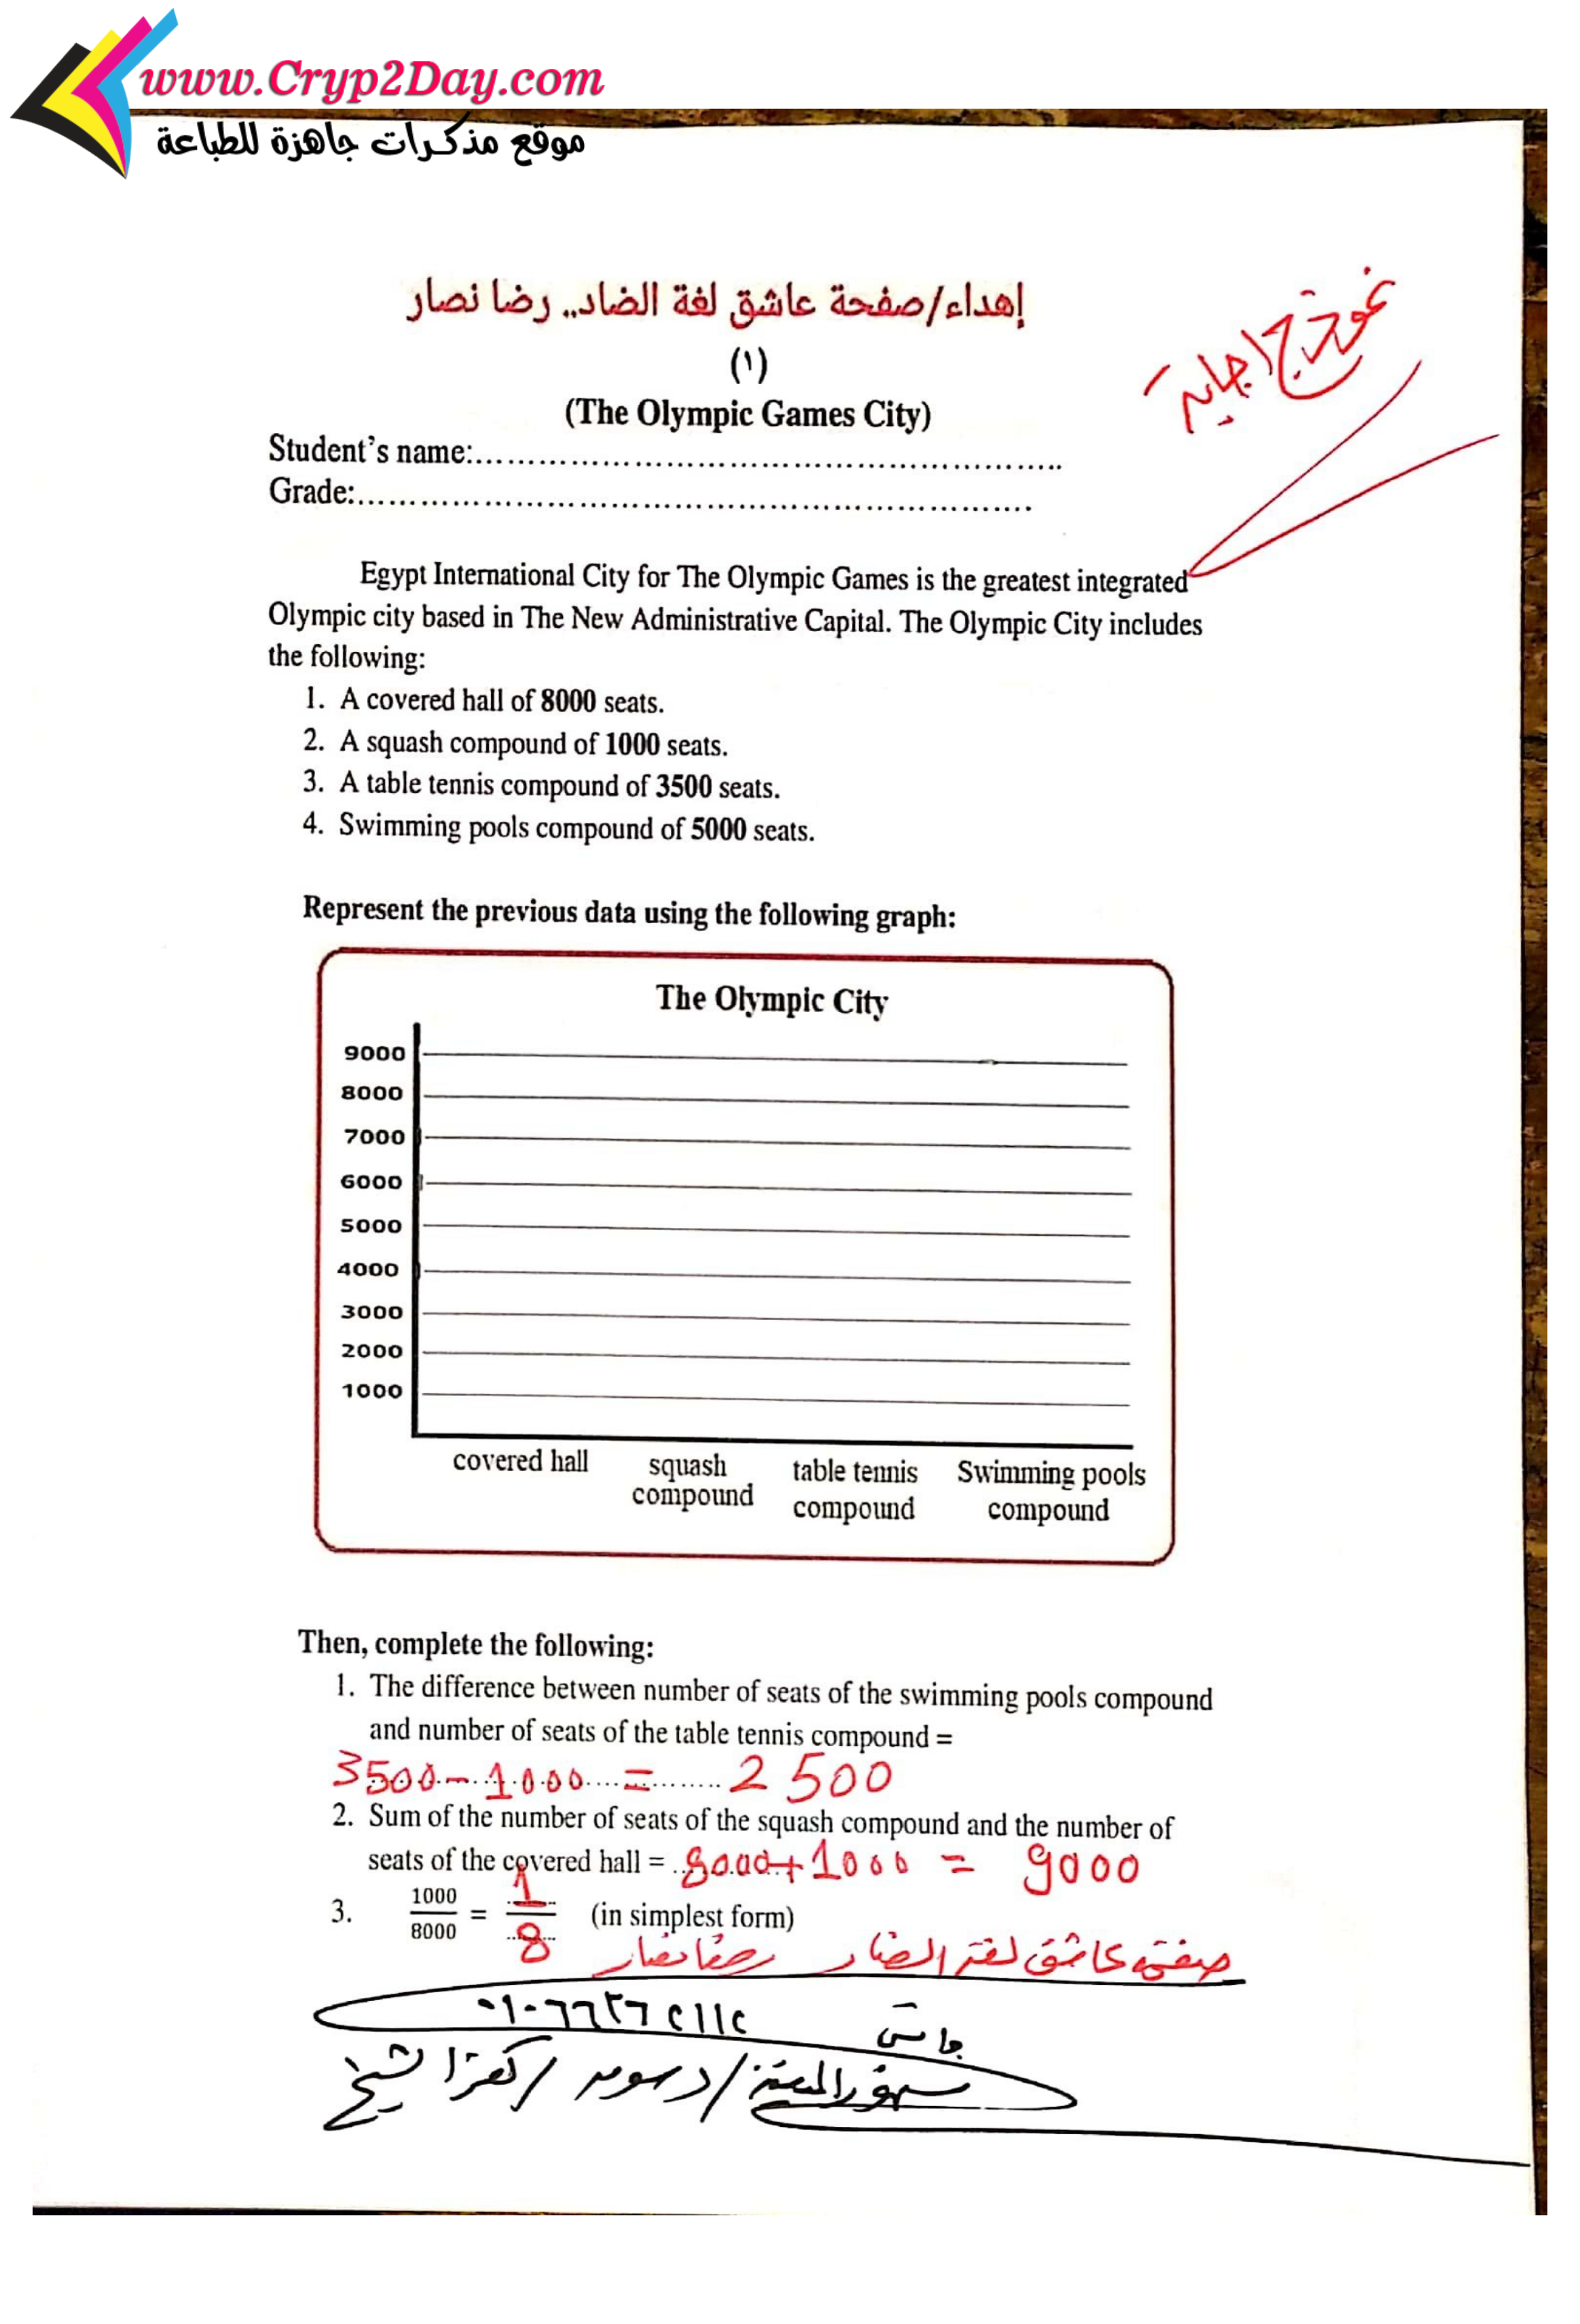 www.Cryp2Day.com
موقع مذكرات جاهزة للطباعة
إهداء/صفحة عاشق لغة الضاد.. رضا نصار
نموذج اجابة
(١)
(The Olympic Games City)
Student's name:..............................................................
Grade:..............................................................
Egypt International City for The Olympic Games is the greatest integrated
Olympic city based in The New Administrative Capital. The Olympic City includes
the following:
1. A covered hall of 8000 seats.
2. A squash compound of 1000 seats.
3. A table tennis compound of 3500 seats.
4. Swimming pools compound of 5000 seats.
Represent the previous data using the following graph:
The Olympic City
9000
8000
7000
6000
5000
4000
3000
2000
1000
covered hall squash compound table tennis compound Swimming pools compound
Then, complete the following:
1. The difference between number of seats of the swimming pools compound
and number of seats of the table tennis compound =
3500 - 1000 = 2500
2. Sum of the number of seats of the squash compound and the number of
seats of the covered hall = 8000 + 1000 = 9000
3. 1000/8000 = 1/8 (in simplest form)
صفحة عاشق لغة الضاد رضا نصار
٠١٠٦٦٢٢٦٢١١٢
/ دسوق / كفر الشيخ